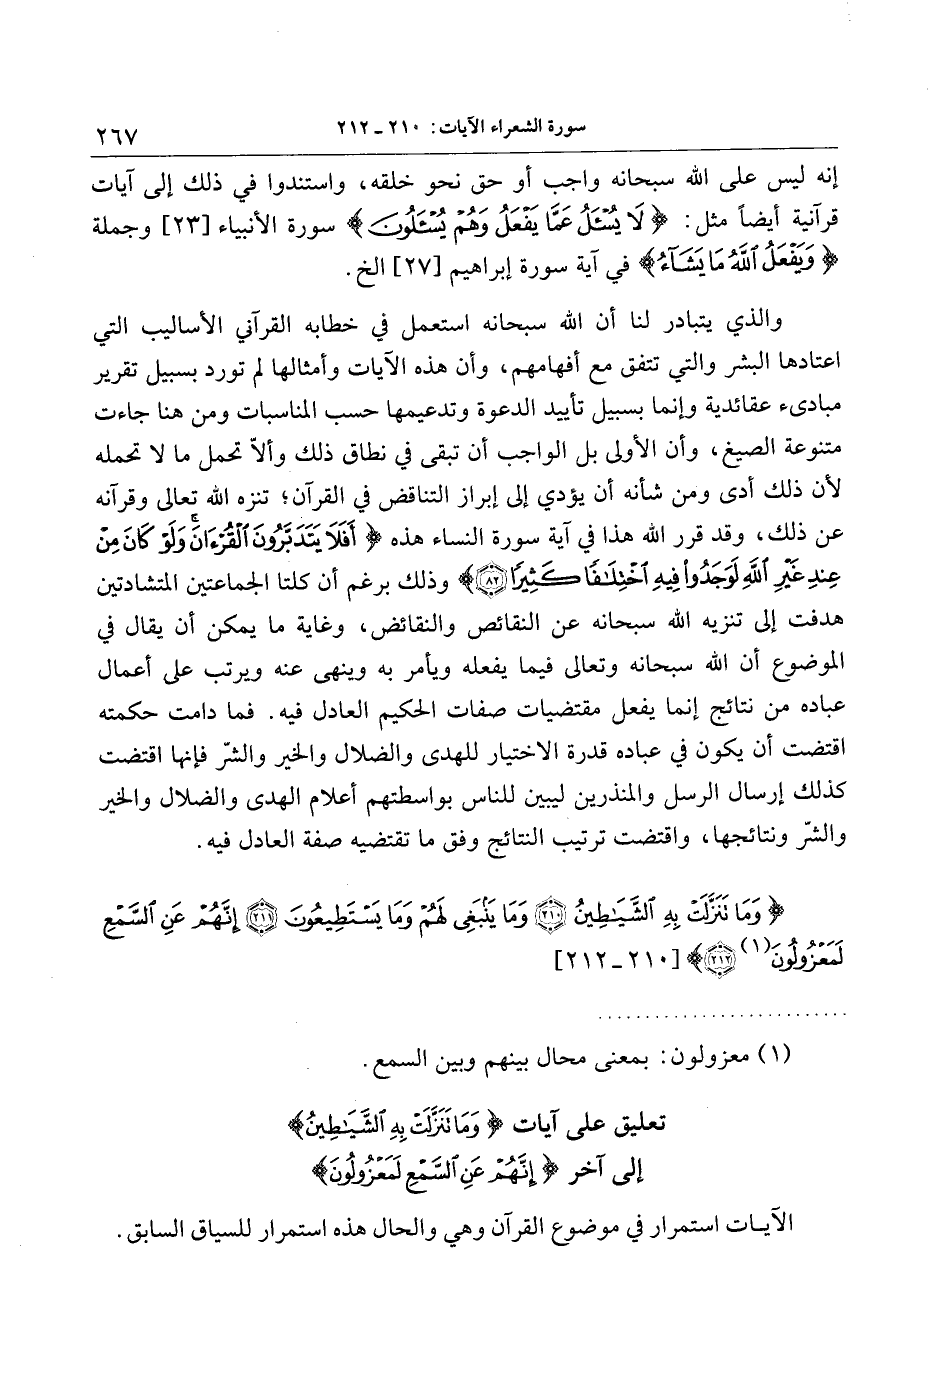 سورة الشعراء الآيات: ٢١٠ ـ ٢١٢
٢٦٧
إنه ليس على الله سبحانه واجب أو حق نحو خلقه، واستندوا في ذلك إلى آيات
قرآنية أيضاً مثل: ﴿لَا يُسْـَٔلُ عَمَّا يَفْعَلُ وَهُمْ يُسْـَٔلُونَ﴾ سورة الأنبياء [٢٣] وجملة
﴿وَيَفْعَلُ ٱللَّهُ مَا يَشَآءُ﴾ في آية سورة إبراهيم [٢٧] الخ.
والذي يتبادر لنا أن الله سبحانه استعمل في خطابه القرآني الأساليب التي
اعتادها البشر والتي تتفق مع أفهامهم، وأن هذه الآيات وأمثالها لم تورد بسبيل تقرير
مبادىء عقائدية وإنما بسبيل تأييد الدعوة وتدعيمها حسب المناسبات ومن هنا جاءت
متنوعة الصيغ، وأن الأولى بل الواجب أن تبقى في نطاق ذلك وألاّ تحمل ما لا تحمله
لأن ذلك أدى ومن شأنه أن يؤدي إلى إبراز التناقض في القرآن؛ تنزه الله تعالى وقرآنه
عن ذلك، وقد قرر الله هذا في آية سورة النساء هذه ﴿أَفَلَا يَتَدَبَّرُونَ ٱلْقُرْءَانَ ۚ وَلَوْ كَانَ مِنْ
عِندِ غَيْرِ ٱللَّهِ لَوَجَدُوا۟ فِيهِ ٱخْتِلَـٰفًا كَثِيرًا ٨٢﴾ وذلك برغم أن كلتا الجماعتين المتشادتين
هدفت إلى تنزيه الله سبحانه عن النقائص والنقائض، وغاية ما يمكن أن يقال في
الموضوع أن الله سبحانه وتعالى فيما يفعله ويأمر به وينهى عنه ويرتب على أعمال
عباده من نتائج إنما يفعل مقتضيات صفات الحكيم العادل فيه. فما دامت حكمته
اقتضت أن يكون في عباده قدرة الاختيار للهدى والضلال والخير والشرّ فإنها اقتضت
كذلك إرسال الرسل والمنذرين ليبين للناس بواسطتهم أعلام الهدى والضلال والخير
والشرّ ونتائجها، واقتضت ترتيب النتائج وفق ما تقتضيه صفة العادل فيه.
﴿وَمَا تَنَزَّلَتْ بِهِ ٱلشَّيَـٰطِينُ ٢١٠ وَمَا يَنۢبَغِى لَهُمْ وَمَا يَسْتَطِيعُونَ ٢١١ إِنَّهُمْ عَنِ ٱلسَّمْعِ
لَمَعْزُولُونَ(١) ٢١٢﴾ [٢١٠ ـ ٢١٢]
(١) معزولون: بمعنى محال بينهم وبين السمع.
تعليق على آيات ﴿وَمَا تَنَزَّلَتْ بِهِ ٱلشَّيَـٰطِينُ﴾
إلى آخر ﴿إِنَّهُمْ عَنِ ٱلسَّمْعِ لَمَعْزُولُونَ﴾
الآيات استمرار في موضوع القرآن وهي والحال هذه استمرار للسياق السابق.